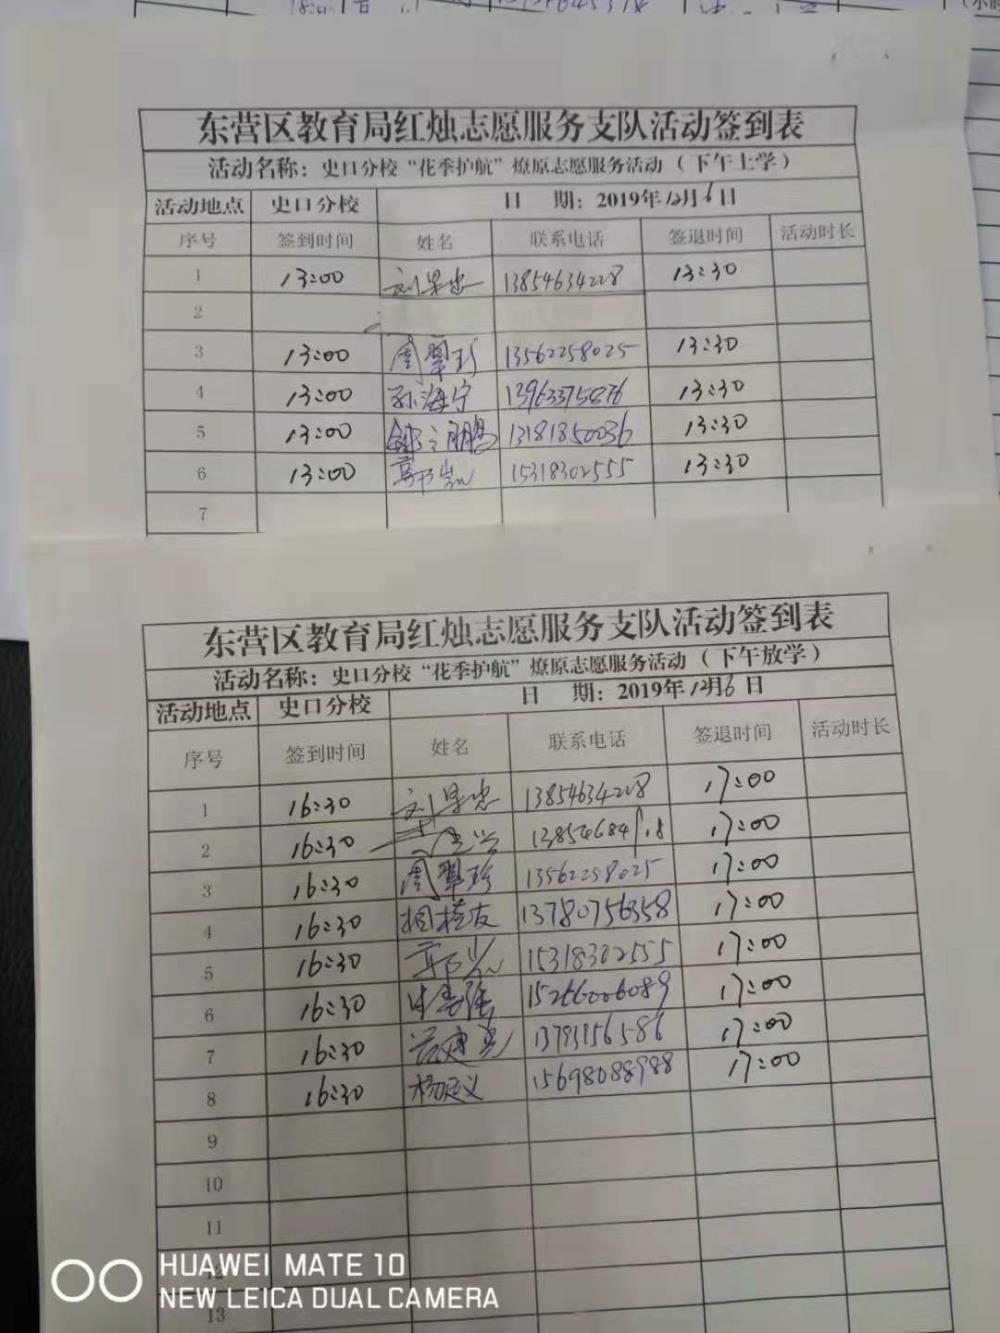 东营区教育局红烛志愿服务支队活动签到表
活动名称：史口分校“花季护航”燎原志愿服务活动（下午上学）
活动地点 史口分校 日 期：2019年12月6日
序号 签到时间 姓名 联系电话 签退时间 活动时长
1 13:00 13854634228 13:30
2
3 13:00 周翠珍 13562258025 13:30
4 13:00 孙海宁 13963375876 13:30
5 13:00 13181850036 13:30
6 13:00 15318302555 13:30
7
东营区教育局红烛志愿服务支队活动签到表
活动名称：史口分校“花季护航”燎原志愿服务活动（下午放学）
活动地点 史口分校 日 期：2019年12月6日
序号 签到时间 姓名 联系电话 签退时间 活动时长
1 16:30 13854634228 17:00
2 16:30 17:00
3 16:30 周翠珍 13562258025 17:00
4 16:30 13780756358 17:00
5 16:30 15318302555 17:00
6 16:30 15266006089 17:00
7 16:30 13793156586 17:00
8 16:30 杨廷义 15698088988 17:00
9
10
11
12
13
HUAWEI MATE 10
NEW LEICA DUAL CAMERA